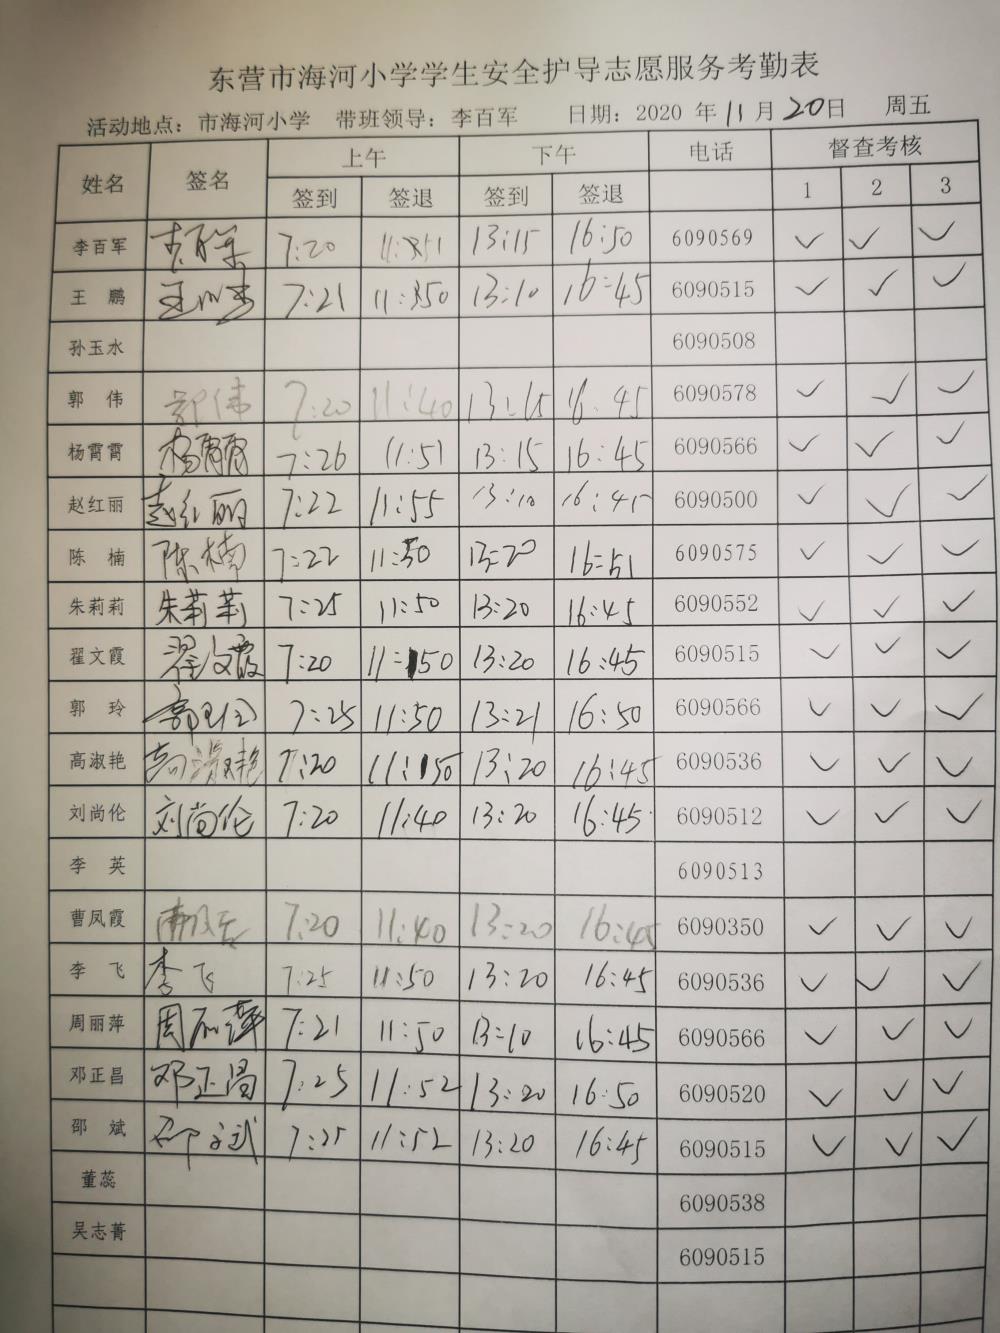 东营市海河小学学生安全护导志愿服务考勤表
活动地点：市海河小学 带班领导：李百军 日期：2020 年 11 月 20 日 周五
姓名 签名 上午 下午 电话 督查考核
签到 签退 签到 签退 1 2 3
李百军 7:20 11:51 13:15 16:50 6090569 ✓ ✓ ✓
王 鹏 7:21 11:50 13:10 16:45 6090515 ✓ ✓ ✓
孙玉水 6090508
郭 伟 郭伟 7:20 11:40 13:15 16:45 6090578 ✓ ✓ ✓
杨霄霄 杨霄霄 7:26 11:51 13:15 16:45 6090566 ✓ ✓ ✓
赵红丽 赵红丽 7:22 11:55 13:10 16:45 6090500 ✓ ✓ ✓
陈 楠 陈楠 7:22 11:50 13:20 16:51 6090575 ✓ ✓ ✓
朱莉莉 朱莉莉 7:25 11:50 13:20 16:45 6090552 ✓ ✓ ✓
翟文霞 翟文霞 7:20 11:50 13:20 16:45 6090515 ✓ ✓ ✓
郭 玲 郭玲 7:25 11:50 13:21 16:50 6090566 ✓ ✓ ✓
高淑艳 高淑艳 7:20 11:50 13:20 16:45 6090536 ✓ ✓ ✓
刘尚伦 刘尚伦 7:20 11:40 13:20 16:45 6090512 ✓ ✓ ✓
李 英 6090513
曹凤霞 曹凤霞 7:20 11:40 13:20 16:45 6090350 ✓ ✓ ✓
李 飞 李飞 7:25 11:50 13:20 16:45 6090536 ✓ ✓ ✓
周丽萍 周丽萍 7:21 11:50 13:10 16:45 6090566 ✓ ✓ ✓
邓正昌 邓正昌 7:25 11:52 13:20 16:50 6090520 ✓ ✓ ✓
邵 斌 邵斌 7:25 11:52 13:20 16:45 6090515 ✓ ✓ ✓
董蕊 6090538
吴志菁 6090515